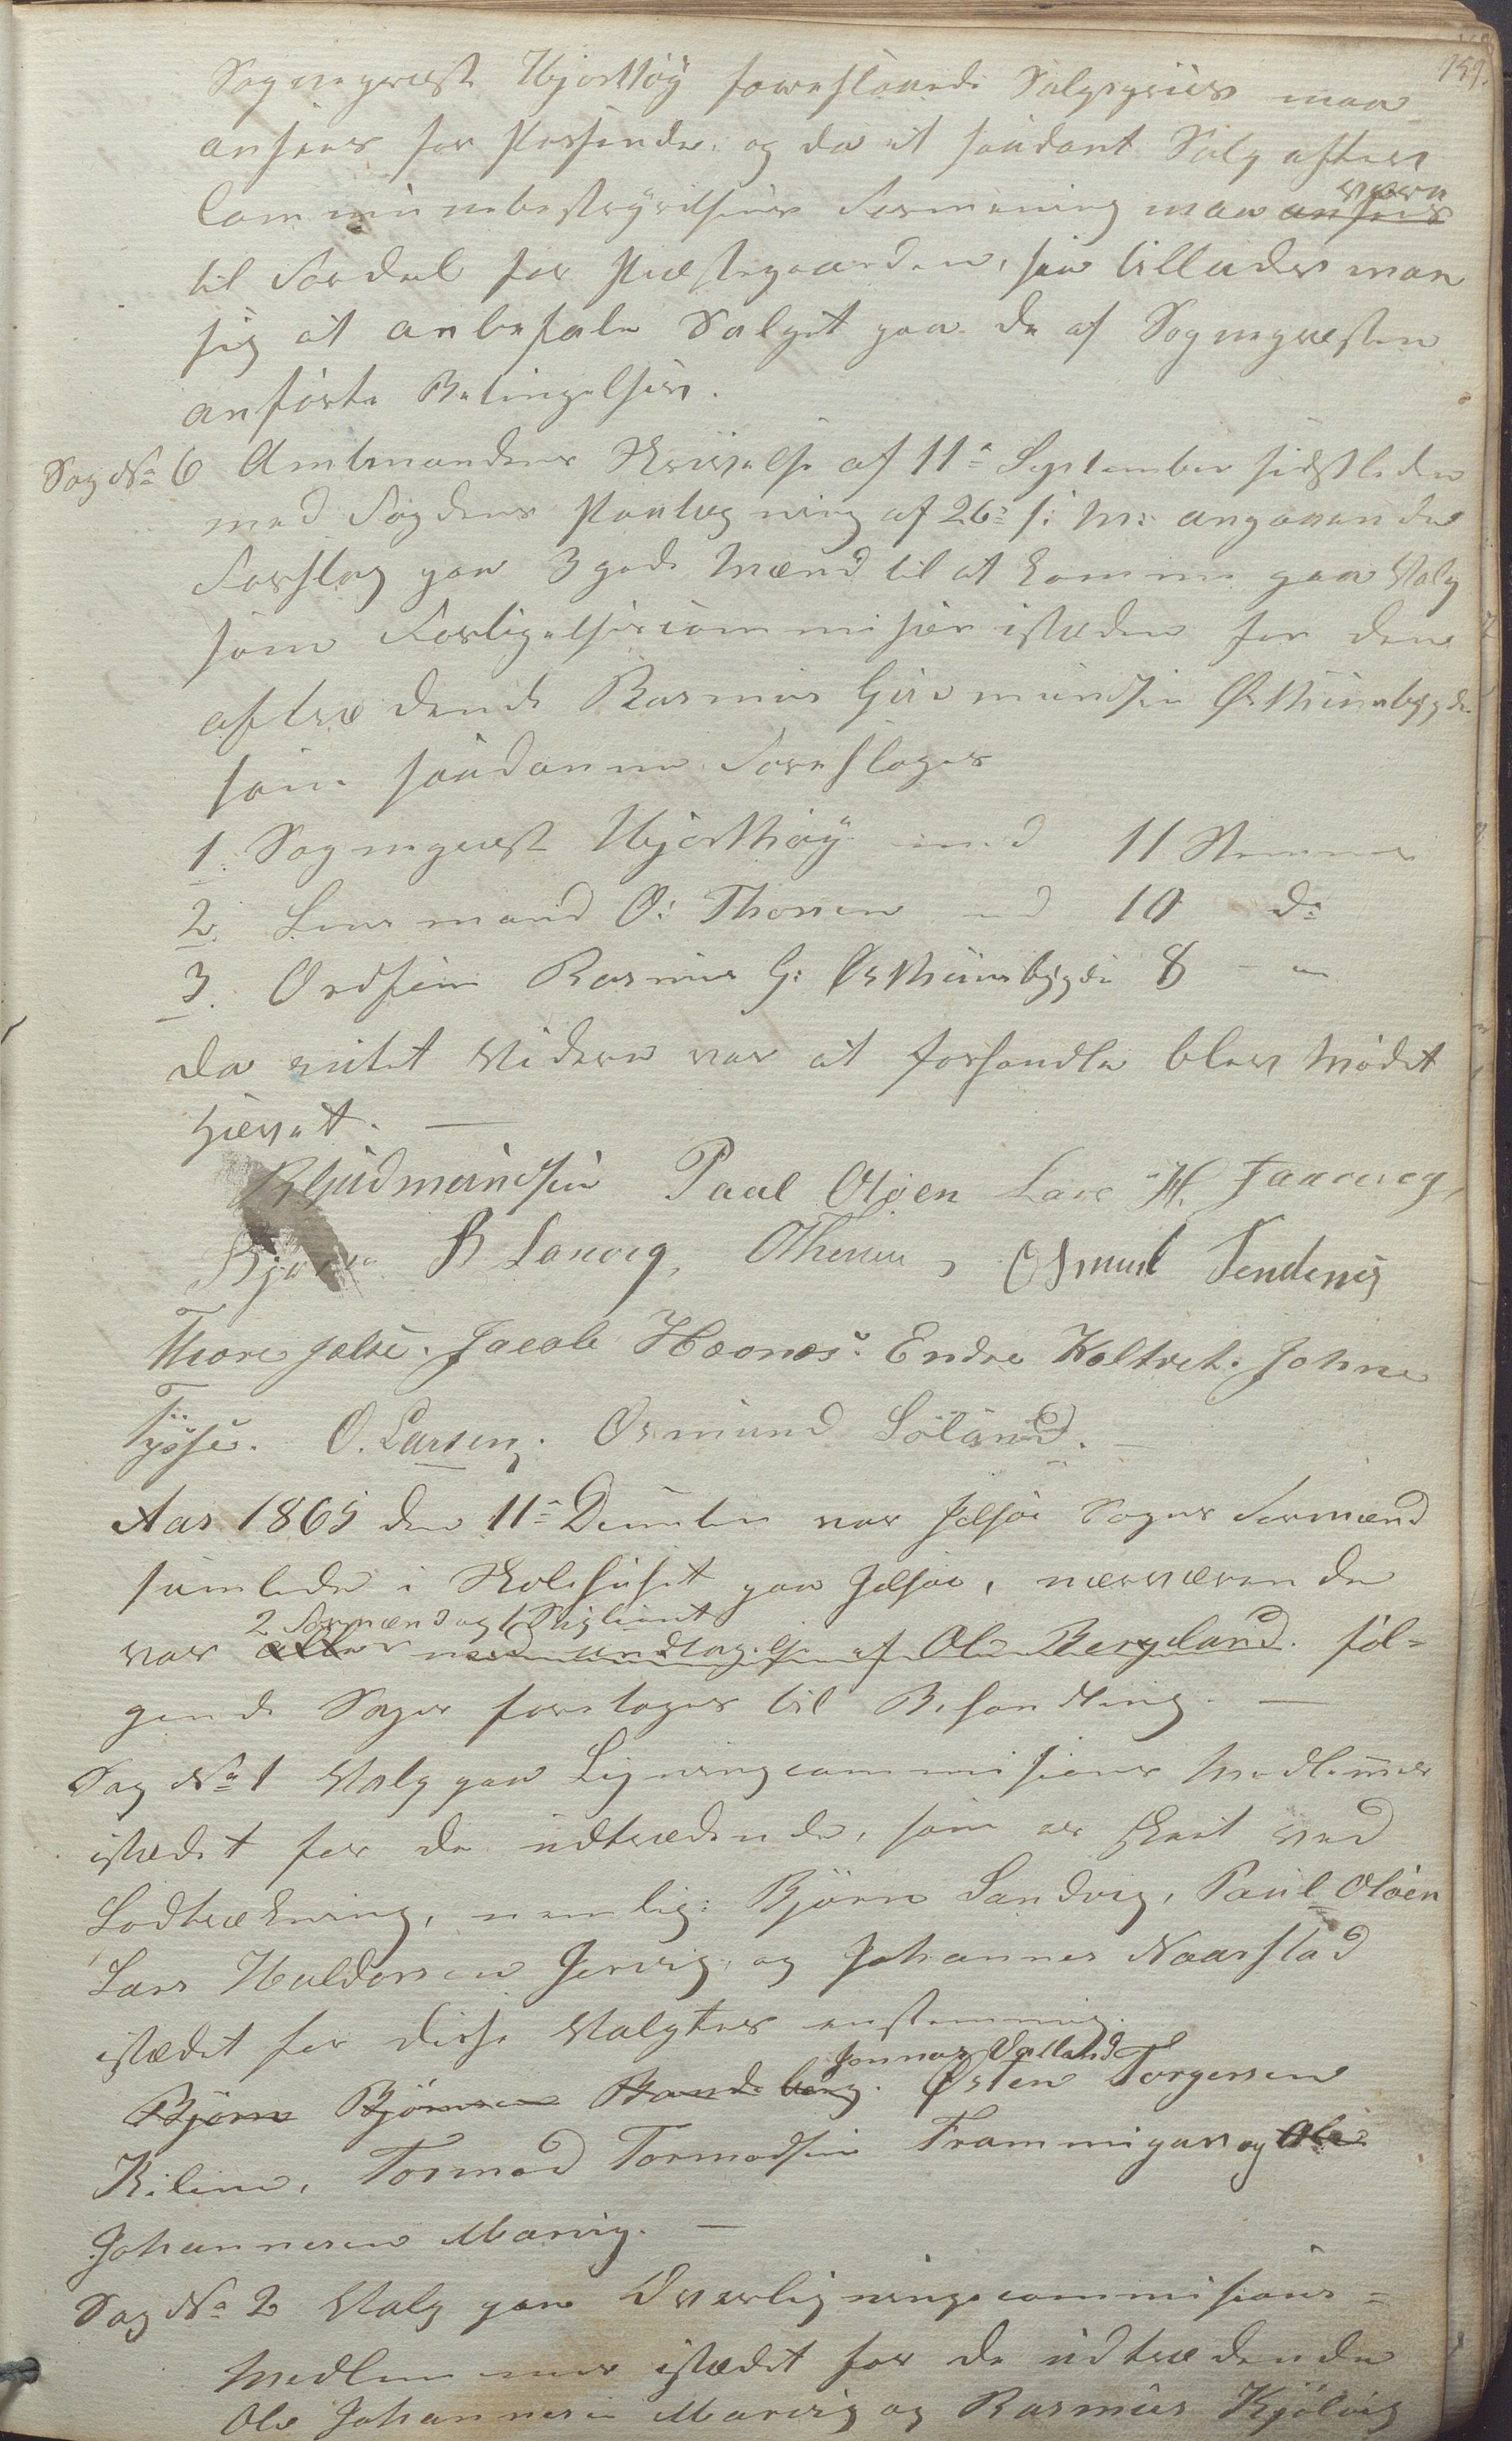 159.
Sogneprest Hjorthøy foreslaaede Salgspriis maa
ansees for Passende, og da et saadant Salg efter
Communebestyrelsens Formening maa være
til Fordel for Præstegaarden, saa tillader man
sig at anbefale Salget paa de af Sognepresten
anførte Betingelser.
Sag No 6 Amtmandens Skrivelse af 11te September sidstleden
med Fogdens Paategning af 26de s: M: angaaende
Forslag paa 3 gode Mænd til at komme paa Valg
som Forligelsescommisær istæden for den
aftrædende Rasmus Gudmundsen Østhunsbygde
som saadanne Foreslages
1. Sogneprest Hjorthøy med 11 Stemmer
2. Lensmand O: Thorsen med 10 do
3. Ordfører Rasmus G: Østhunsbygde 8 - "
da intet Videre var at forhandle blev Mødet
hævet. —
R Gudmundsen Paal Oløen Lars H.
Bjørn B Sanvig, OThorsen, Osmul Tendenis
Thore Jelse. Jacob Hæones. Endre Koltvet. Johne
Tjøse. O. Larsen. Osmund Søland. —
Aar 1865 den 11te December var Jelsøe Sogns Formænd
samlede i Skolehuset paa Jelsøe, nærværende
2 Formænd og 1 Supliant
var alle med undtagelse af Ole Bergeland. føl=
gende Sager foretoges til Behandling. —
Sag No 1 Valg paa Ligningscommisions Medlemmer
istædet for de udtrædende, som er skeet ved
Lodtrækning, nemlig: Bjørn Sandvig, Paul Oløen
Lars Haldorsen Jervig, og Johannes Naarstad
istædet for disse Valgtes enstemmig.
Gunnar Valland
Bjørn Bjørnsen Østen Torgersen
Tormod Tormodsen og Ole
Johannesen Marvig. —
Sag No 2 Valg paa Overligningscommisions=
Medlemmer istædet for de udtrædende
Ole Johannesen Marvig og Rasmus Kjølvig